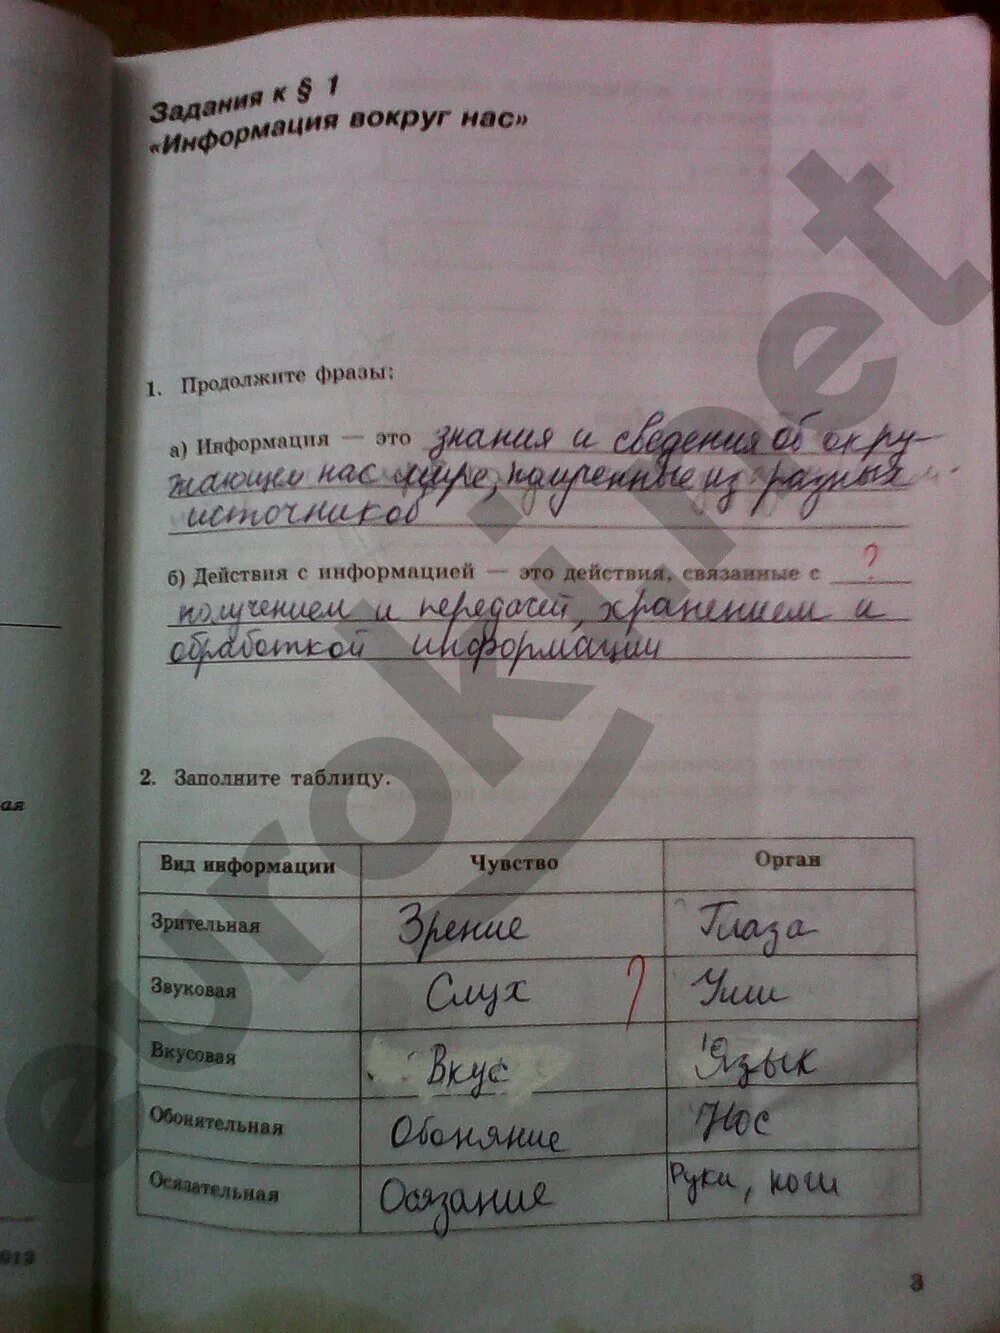 Задания к § 1
«Информация вокруг нас»
1. Продолжите фразы:
а) Информация — это знания и сведения об окру-
жающем нас мире, полученные из разных
источников
б) Действия с информацией — это действия, связанные с ?
получением и передачей, хранением и
обработкой информации
2. Заполните таблицу.
Вид информации Чувство Орган
Зрительная Зрение Глаза
Звуковая Слух ? Уши
Вкусовая Вкус Язык
Обонятельная Обоняние Нос
Осязательная Осязание Руки, ноги
3
ая
013
euroki.net